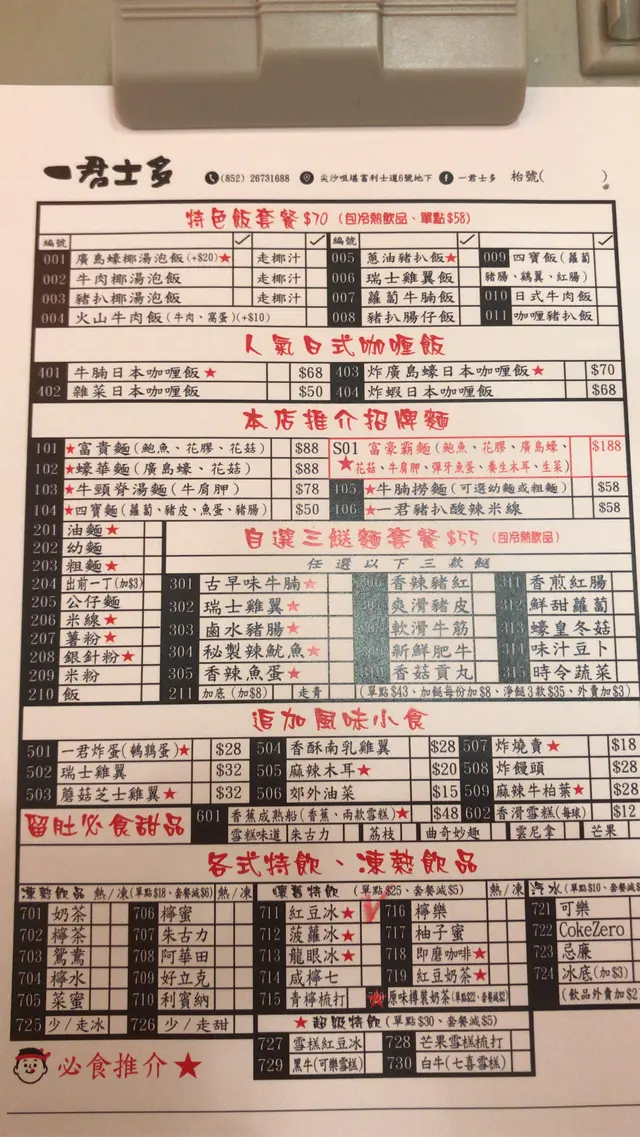 一君士多 (852) 26731688 尖沙咀堪富利士道6號地下 一君士多 枱號( )
特色飯套餐 $70 (包冷熱飲品、單點$58)
編號 編號
001 廣島蠔椰湯泡飯(+$20)★ 走椰汁 005 蔥油豬扒飯★ 009 四寶飯(蘿蔔
002 牛肉椰湯泡飯 走椰汁 006 瑞士雞翼飯 豬腸、鷄翼、紅腸)
003 豬扒椰湯泡飯 走椰汁 007 蘿蔔牛腩飯 010 日式牛肉飯
004 火山牛肉飯(牛肉、窩蛋)(+$10) 008 豬扒腸仔飯 011 咖喱豬扒飯
人氣日式咖喱飯
401 牛腩日本咖喱飯★ $68 403 炸廣島蠔日本咖喱飯★ $70
402 雜菜日本咖喱飯 $50 404 炸蝦日本咖喱飯 $68
本店推介招牌麵
101 ★富貴麵(鮑魚、花膠、花菇) $88 S01 富豪霸麵(鮑魚、花膠、廣島蠔、 $188
102 ★蠔華麵(廣島蠔、花菇) $88 ★花菇、牛肩胛、彈牙魚蛋、養生木耳、生菜)
103 ★牛頸脊湯麵(牛肩胛) $78 105 ★牛腩撈麵(可選幼麵或粗麵) $58
104 ★四寶麵(蘿蔔、豬皮、魚蛋、豬腸) $50 106 ★一君豬扒酸辣米線 $58
自選三餸麵套餐 $55 (包冷熱飲品)
任選以下三款餸
201 油麵★
202 幼麵
203 粗麵★
204 出前一丁(加$3) 301 古早味牛腩★ 306 香辣豬紅 311 香煎紅腸
205 公仔麵 302 瑞士雞翼★ 爽滑豬皮 312 鮮甜蘿蔔
206 米線★ 303 鹵水豬腸★ 軟滑牛筋 313 蠔皇冬菇
207 薯粉★ 304 秘製辣魷魚★ 新鮮肥牛 314 味汁豆卜
208 銀針粉★ 305 香辣魚蛋★ 香菇貢丸 315 時令蔬菜
209 米粉
210 飯 211 加底(加$8) 走青 (單點$43、加餸每份加$8、淨餸3款$35、外賣加$3)
追加風味小食
501 一君炸蛋(鵪鶉蛋)★ $28 504 香酥南乳雞翼 $28 507 炸燒賣★ $18
502 瑞士雞翼 $32 505 麻辣木耳★ $20 508 炸饅頭 $28
503 蘑菇芝士雞翼★ $32 506 郊外油菜 $15 509 麻辣牛柏葉★ $28
留肚必食甜品 601 香蕉成熟船(香蕉、兩款雪糕)★ $48 602 香滑雪糕(每球) $12
雪糕味道 朱古力 荔枝 曲奇妙趣 雲尼拿 芒果
各式特飲、凍熱飲品
凍熱飲品 熱/凍(單點$18、套餐減$6) 熱/凍 懷舊特飲 (單點$25、套餐減$5) 熱/凍 汽水(單點$10、套餐減$
701 奶茶 706 檸蜜 711 紅豆冰★ 716 檸樂 721 可樂
702 檸茶 707 朱古力 712 菠蘿冰★ 717 柚子蜜 722 CokeZero
703 鴛鴦 708 阿華田 713 龍眼冰★ 718 即磨咖啡★ 723 忌廉
704 檸水 709 好立克 714 咸檸七 719 紅豆奶茶★ 724 冰底(加$3)
705 菜蜜 710 利賓納 715 青檸梳打 原味樽裝奶茶(單點$22、套餐減$2) (飲品外賣加$2
725 少/走冰 726 少/走甜 ★超級特飲 (單點$30、套餐減$5)
727 雪糕紅豆冰 728 芒果雪糕梳打
729 黑牛(可樂雪糕) 730 白牛(七喜雪糕)
必食推介★